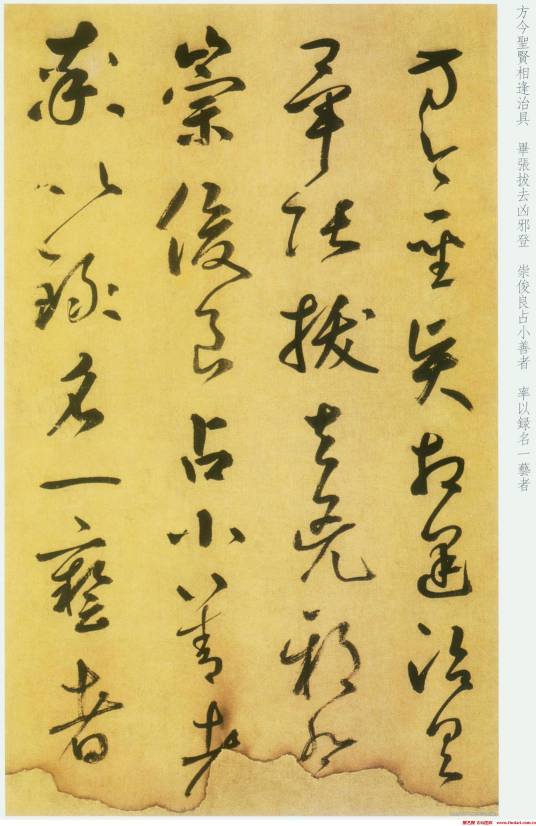 方今聖賢相逢治具
畢張拔去凶邪登
崇俊良占小善者
率以録名一藝者
方今聖賢相逢治具 畢張拔去凶邪登 崇俊良占小善者 率以録名一藝者
www.findart.com.cn